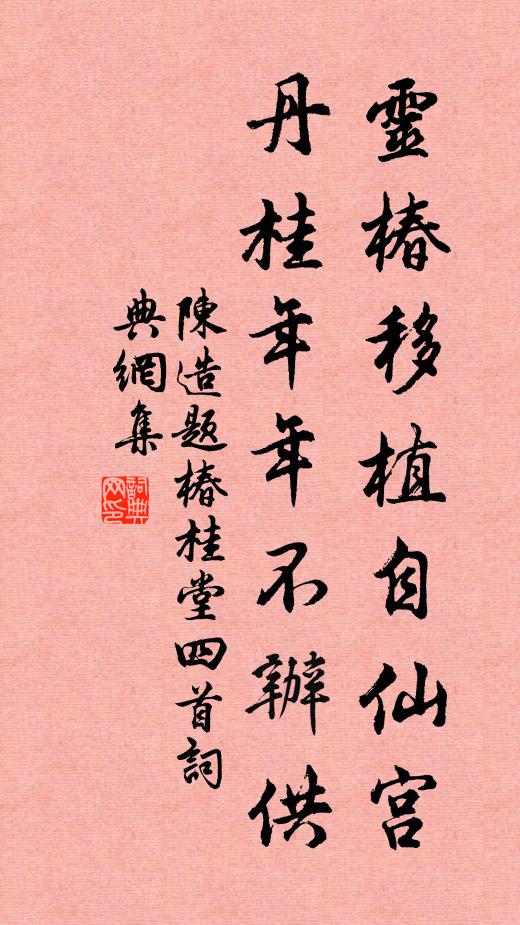 靈椿移植自仙宮
丹桂年年不辦供
陳造題椿桂堂四首詞
典網集
詞典
网印